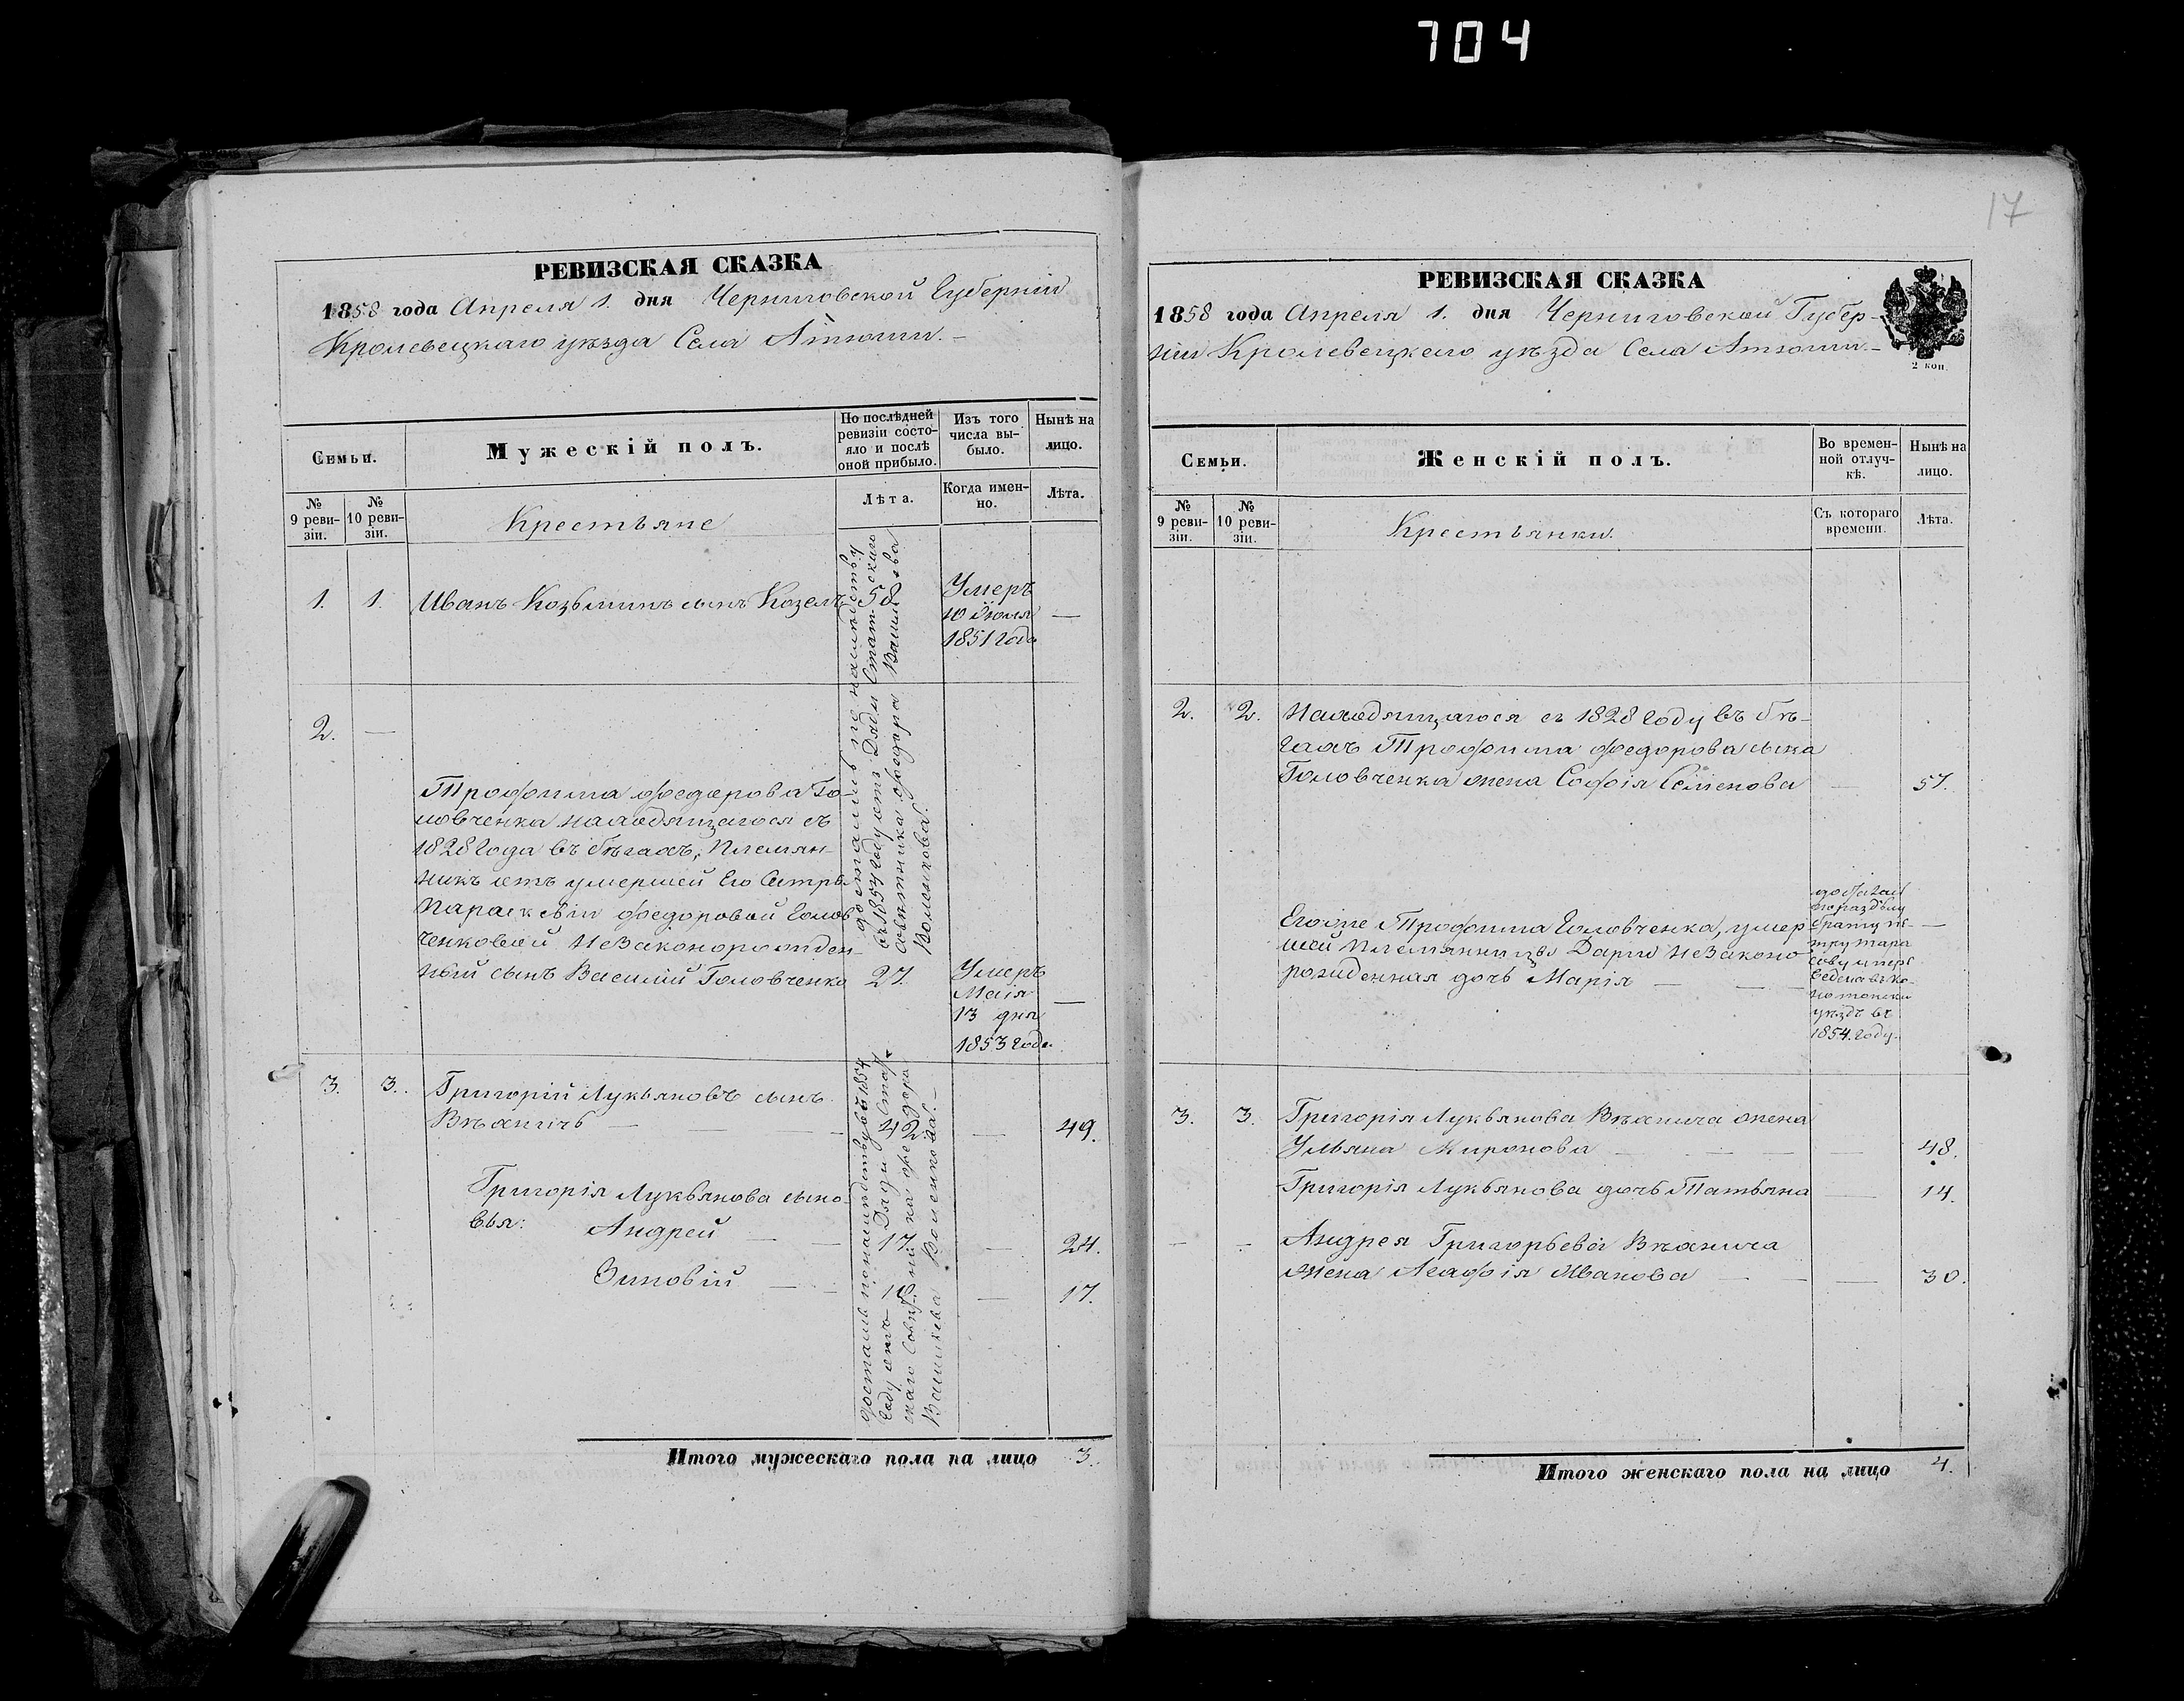 704
17
РЕВИЗСКАЯ СКАЗКА
1858 года Апреля 1. дня Черниговской Губерніи
Кролевецкаго уѣзда Села Атюши.
Семьи.
Мужескій полъ.
По послѣдней ревизіи состояло и послѣ оной прибыло.
Изъ того числа выбыло.
Нынѣ на лицо.
№ 9 ревизіи.
№ 10 ревизіи.
Крестьяне
Лѣта.
Когда именно.
Лѣта.
1. 1. Иванъ Козьминъ сынъ Козелъ
Умеръ
10 Іюля
1851 года
—
2. —
Трофима Федорова Го-
ловченка находящагося съ
1828 года въ бѣгахъ, Племян-
никъ отъ умершей Его Сестры
Параскевіи Федоровой Голов
ченковой Незаконорожден-
ный сынъ Василій Головченко 27.
Умеръ
Маія
13 дня
1853 года
—
достались по наслѣдству
въ 1854 году отъ Дяди Статскаго
Совѣтника Федора
3. 3. Григорій Лукьяновъ сынъ
Вѣхничъ — 42 — 49.
Григорія Лукьянова сыно
вья:
Андрей — 17 — 24.
Зиновій — 10 — 17.
достались по наслѣдству въ 1854
году отъ Дяди Стат
скаго Совѣтника Федора
Итого мужескаго пола на лицо 3.
РЕВИЗСКАЯ СКАЗКА
1858 года Апреля 1. дня Черниговской Губер-
ніи Кролевецкаго уѣзда Села Атюши
2 коп.
Семьи.
Женскій полъ.
Во временной отлучкѣ.
Нынѣ на лицо.
№ 9 ревизіи.
№ 10 ревизіи.
Крестьянки.
Съ котораго времени.
Лѣта.
2. 2. Находящагося съ 1828 году въ бѣ-
гахъ Трофима Федорова сына
Головченка жена Софія Семенова — 57.
Егоже Трофима Головченка, умер
шой Племянницы Дарьи Незаконо
рожденная дочь Марія — —
брату
уѣздъ въ
1854. году.
—
3. 3. Григорія Лукьянова Вѣхнича жена
Ульяна Миронова — 48.
Григорія Лукьянова дочь Татьяна — 14.
— — Андрея Григорьева Вѣхнича
жена Агафія Иванова — 30.
Итого женскаго пола на лицо 4.